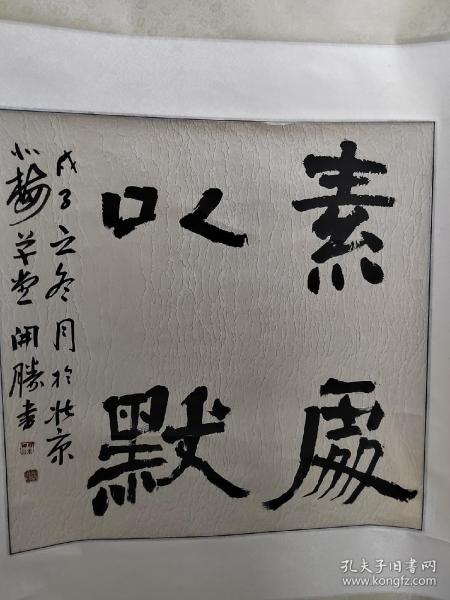 素處
以默
戊子立冬月於北京
梅草堂開勝書
孔夫子旧书网
www.kongfz.com